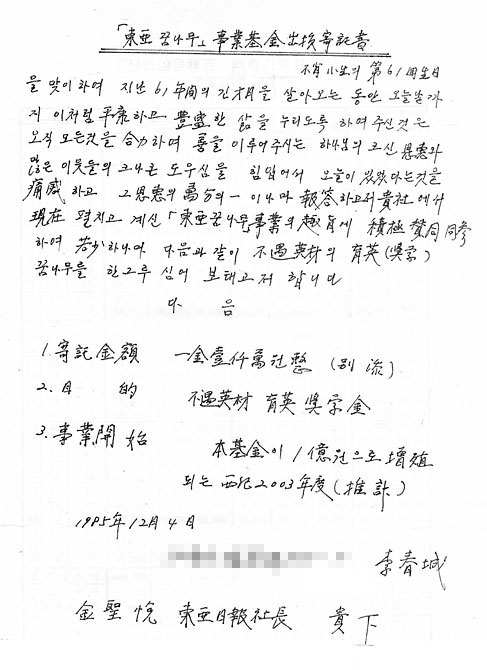 「東亜 꿈나무」事業基金出捐寄託書
不肖小生의 第61回生日
을 맞이하여 지난 61年間의 긴 才月을 살아오는 동안 오늘날까
지 이처럼 平康하고 豊盛한 삶을 누리도록 하여주신것은
오직 모든것을 合力하여 善을 이루어주시는 하나님의 크신 恩惠와
많은 이웃들의 크나큰 도우심을 힘입어서 오늘이 있었다는것을
痛感하고 그 恩惠의 萬分의 一이나마 報答하고저 貴社에서
現在 펼치고 계신 「東亜꿈나무」事業의 趣旨에 積極 賛同 同參
하여 若少하나마 다음과 같이 不遇英材의 育英(奬学)
꿈나무를 한그루 심어 보태고저 합니다
다 음
1. 寄託金額 一金壹仟萬원整 (別添)
2. 目 的 不遇英材 育英 奬学金
3. 事業開始 本基金이 1億원으로 增殖
되는 西紀2003年度(推計)
1985年 12月 4日
李春城
金聖悦 東亜日報社長 貴下